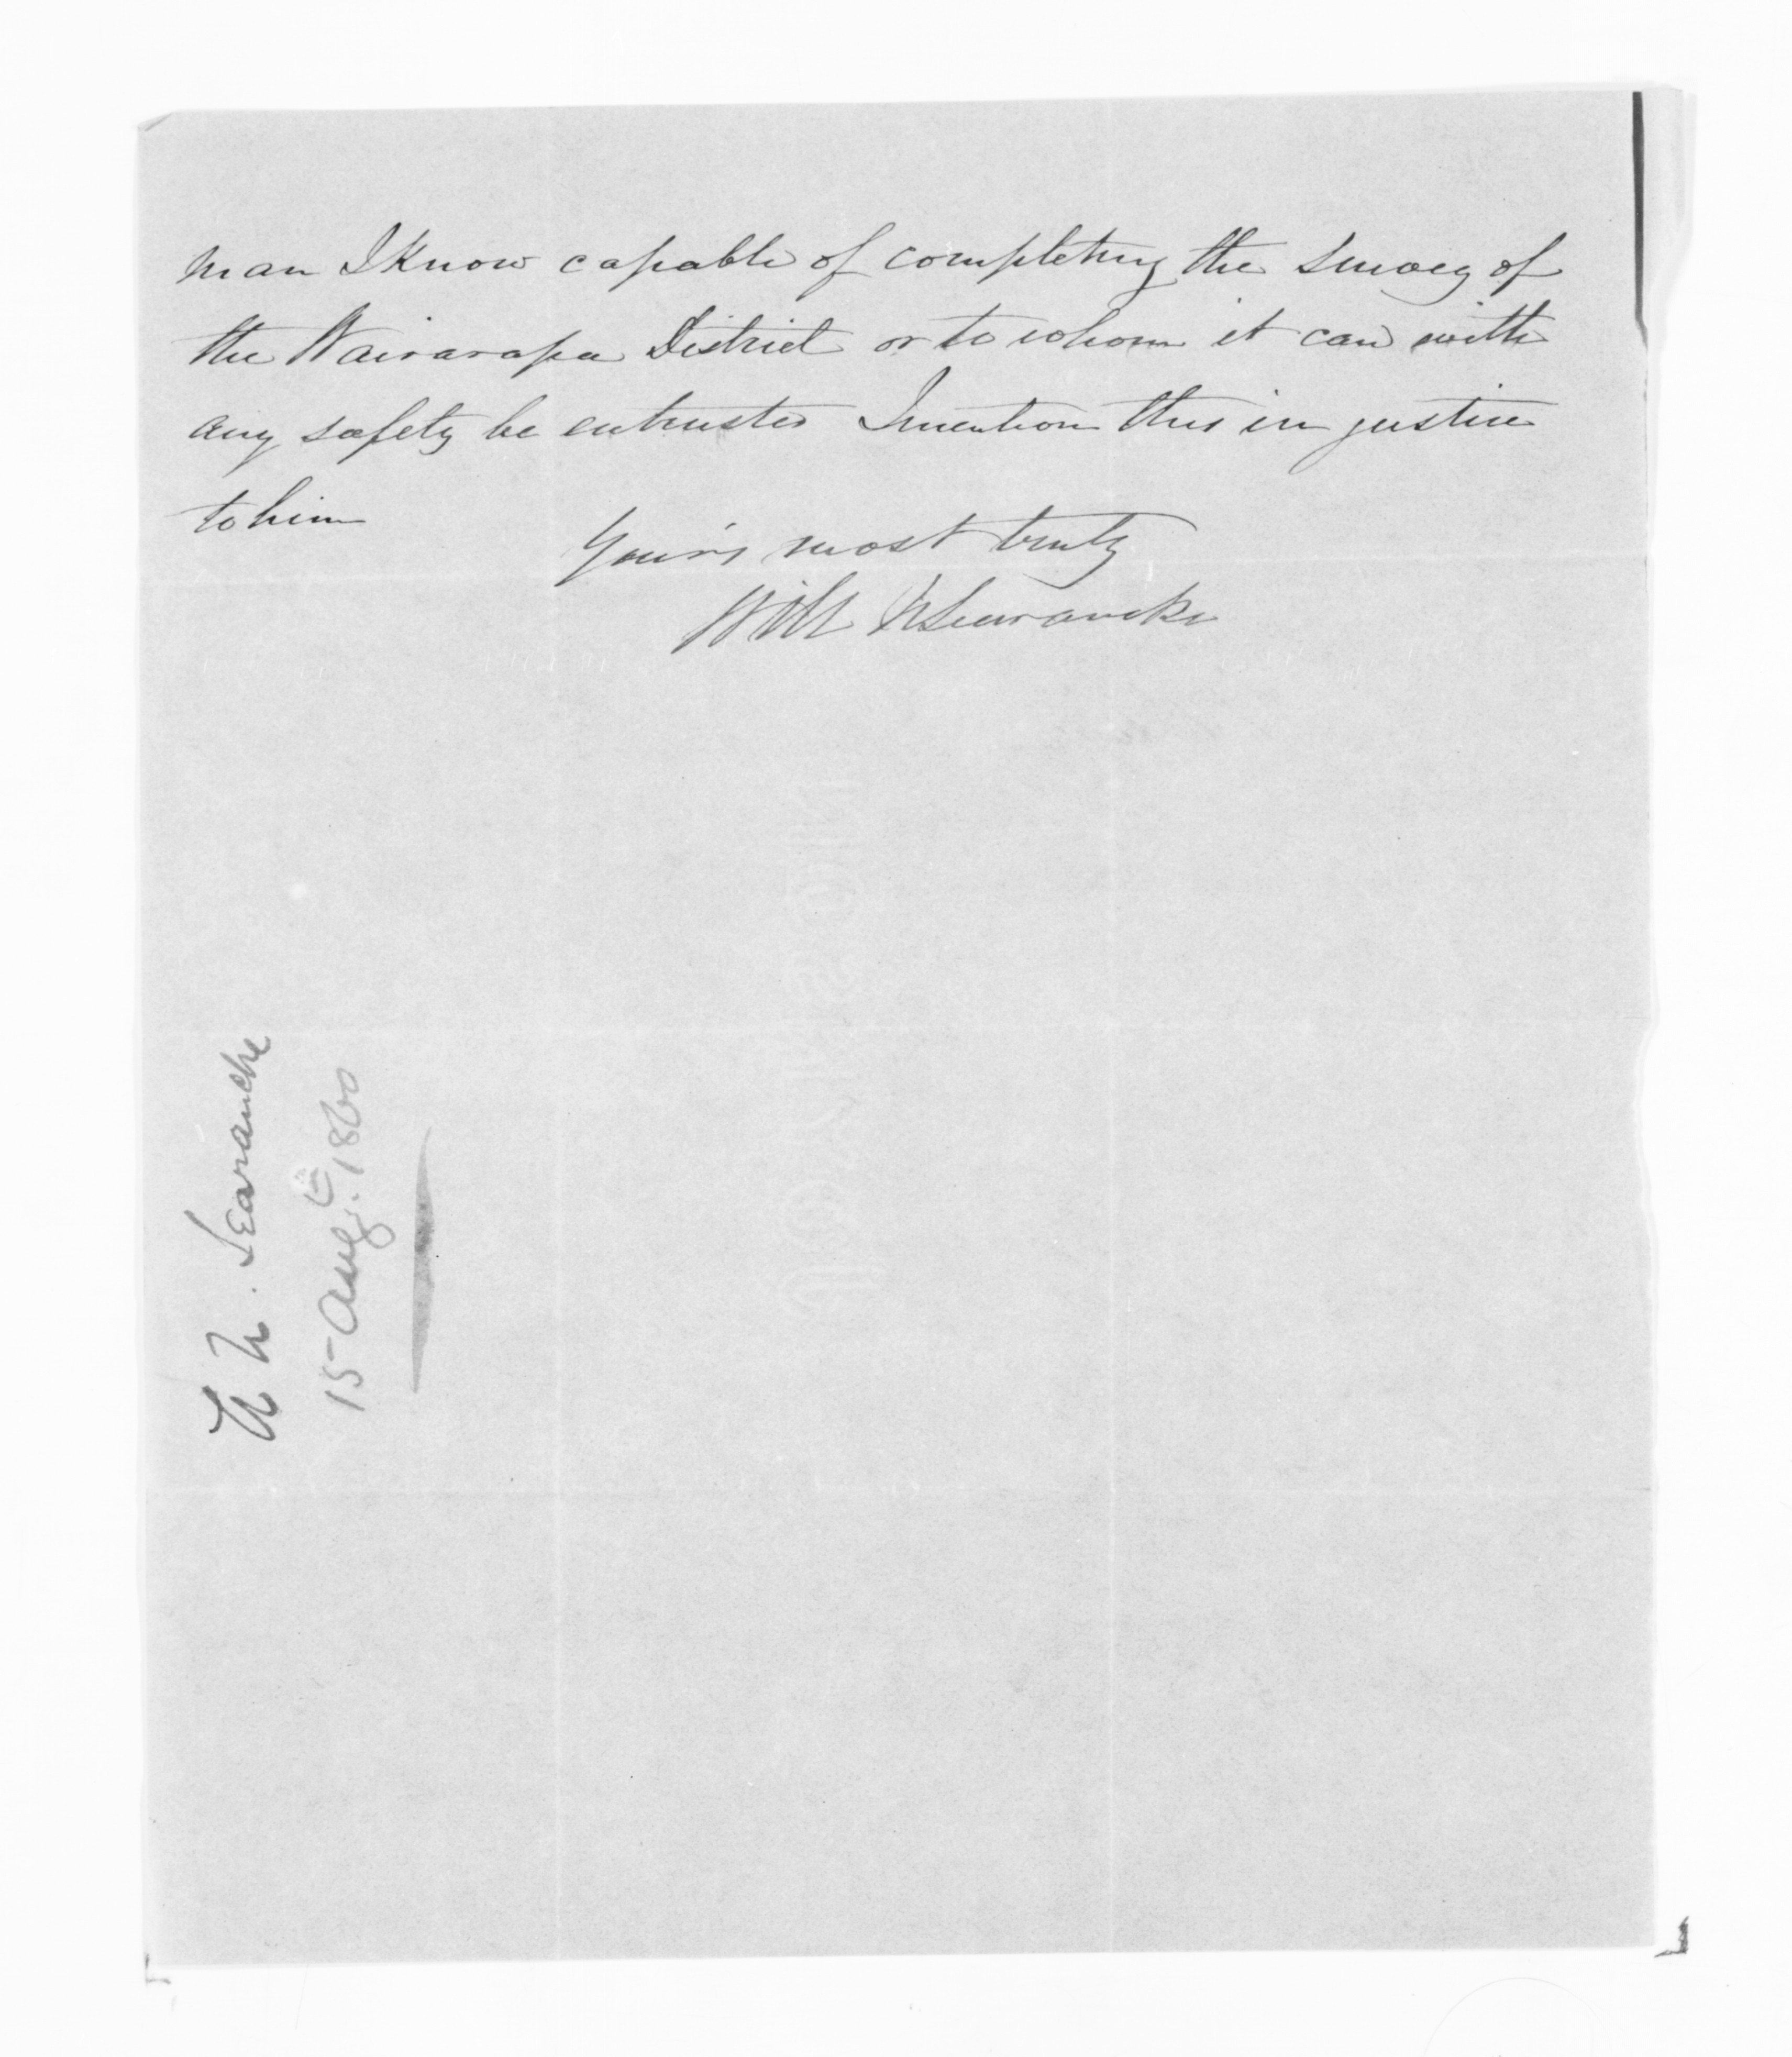 man I Know capable of completing the Survey of
the Wairarapa District or to whom it can with
any safety be entrusted I mention this in justice
to him
Your's most truly
Will N Searancke
W N. Searancke
15 Augt. 1860